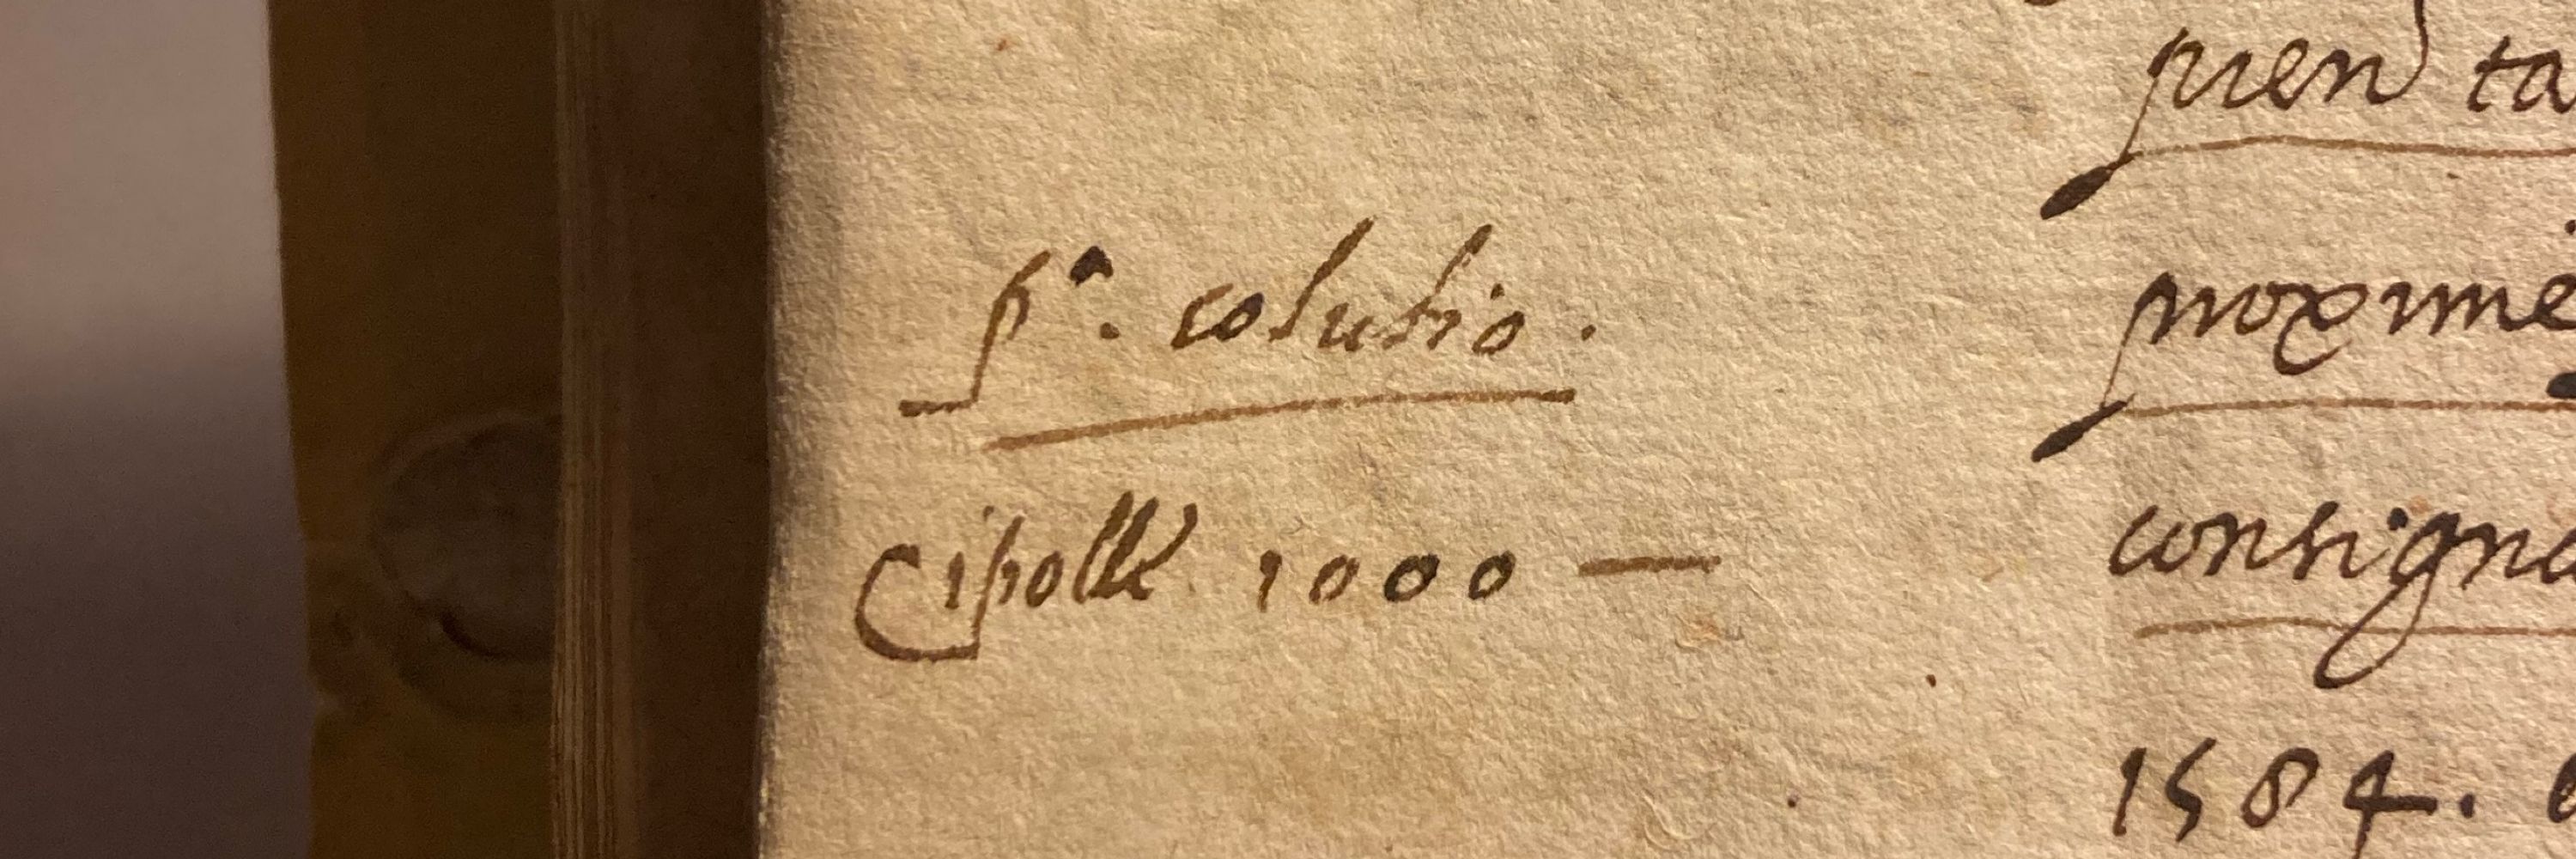 pᵃ. solutio.
Cipolle 1000 —
pren ta
proxime
consigna
1584.